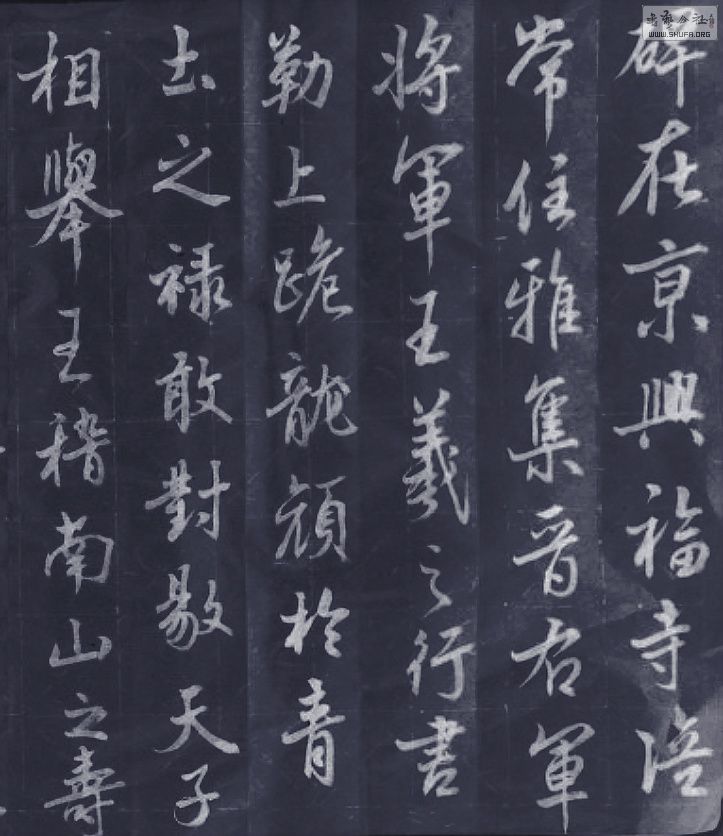 碑在京興福寺陪
常住雅集晉右軍
將軍王羲之行書
勒上跪龍頑於青
土之祿敢對敭天子
相舉王稽南山之壽
WWW.SHUFA.ORG